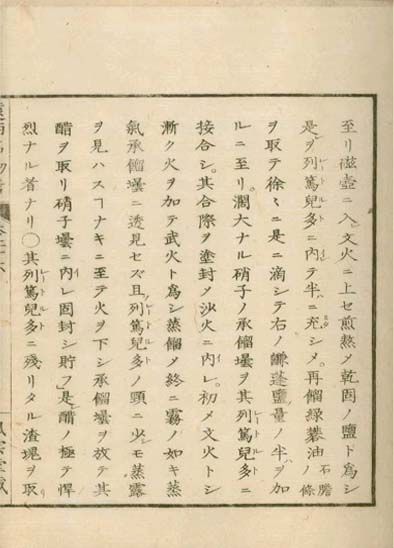 至リ磁壺ニ入レ文火ニ上セ煎熬メ乾固ノ鹽ト為シ
是ヲ列篤兒多ニ内テ半ニ充シメ。再餾綠礬油石膽ノ條
ヲ取テ徐々ニ是ニ滴シテ右ノ鹻蓬鹽量ノ半ヲ加
ルニ至リ。濶大ナル硝子ノ承餾壜ヲ其列篤兒多ニ
接合シ。其合際ヲ塗封メ沙火ニ内レ。初メ文火トシ
漸ク火ヲ加テ武火ト為シ蒸餾メ終ニ霧ノ如キ蒸
氣承餾壜ニ透見セズ且列篤兒多ノ頸ニ少モ蒸露
ヲ見ハスヿナキニ至テ火ヲ下シ承餾壜ヲ放テ其
醋ヲ取リ硝子壜ニ内レ固封シ貯フ是醋ノ極テ悍
烈ナル者ナリ〇其列篤兒多ニ殘リタル渣塊ヲ取